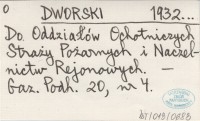 0 DWORSKI 1932...
Do Oddziałów Ochotniczych
Straży Pożarnych i Naczel-
nictw Rejonowych. —
Gaz. Podh. 20, nr 4.